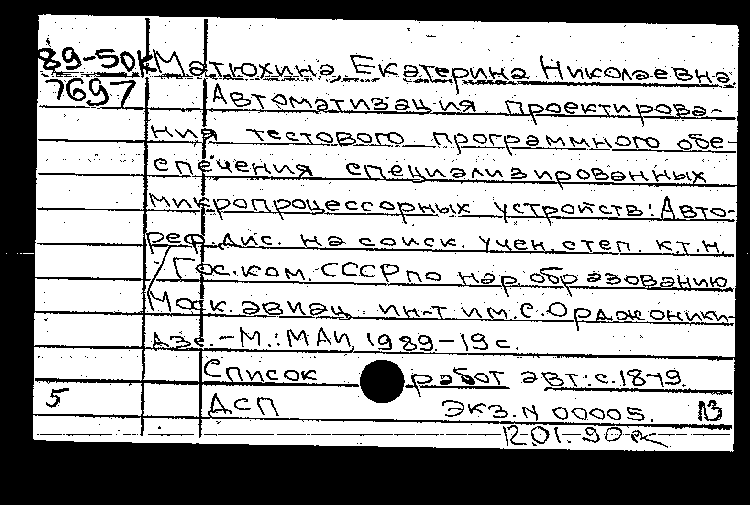 89-50к Матюхина, Екатерина Николаевна
7697 Автоматизация проектирова-
ния тестового программного обе-
спечения специализированных
микропроцессорных устройств: Авто-
реф. дис. на соиск. учен. степ. к.т.н.
/ Гос. ком. СССР по нар. образованию
Моск. авиац. ин-т им. С. Орджоники-
дзе. – М.: МАИ, 1989 – 19 с.
Список работ авт.: с. 18-19.
5 ДСП Экз. N 00005.
12.01.90